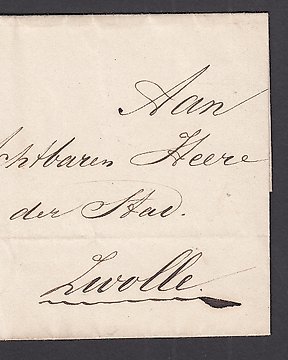 Aan
chtbaren Heere
der Stad.
Zwolle.